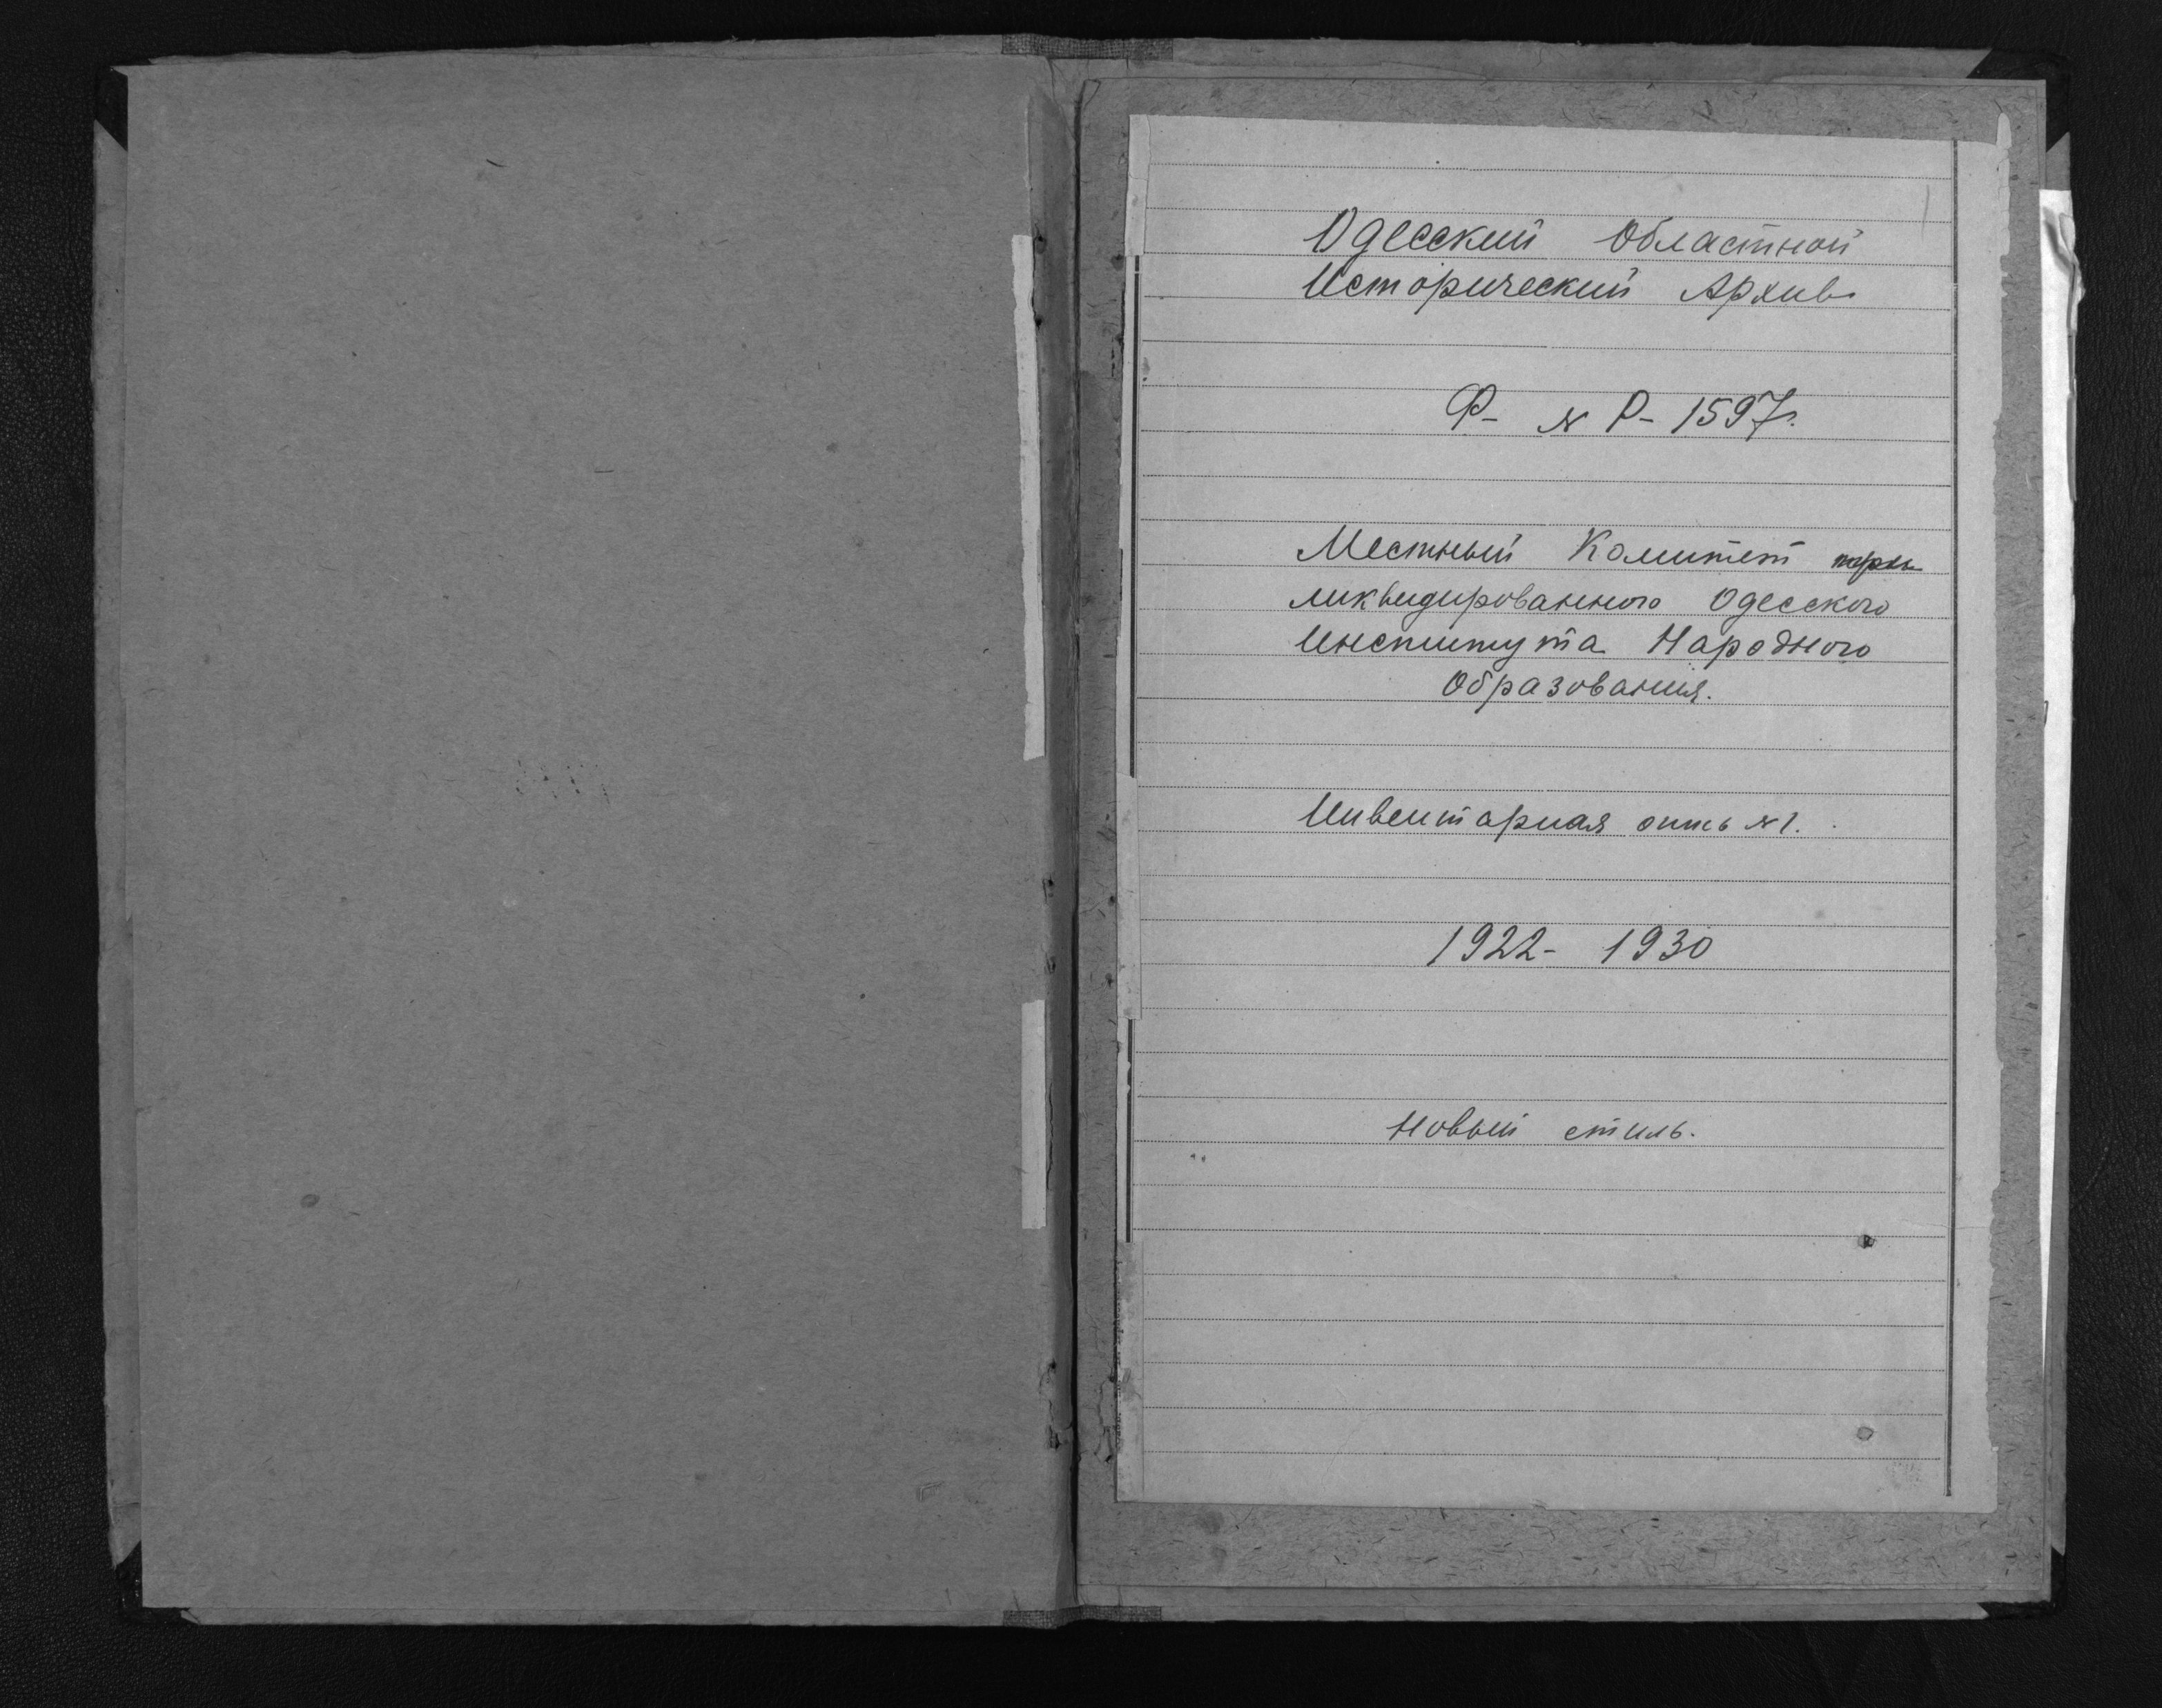 Одесский Областной
Исторический Архив
Ф- № Р- 1597.
Местный Комитет при
ликвидированного Одесского
Института Народного
Образования.
Инвентарная опись №1.
1922- 1930
Новый стиль.